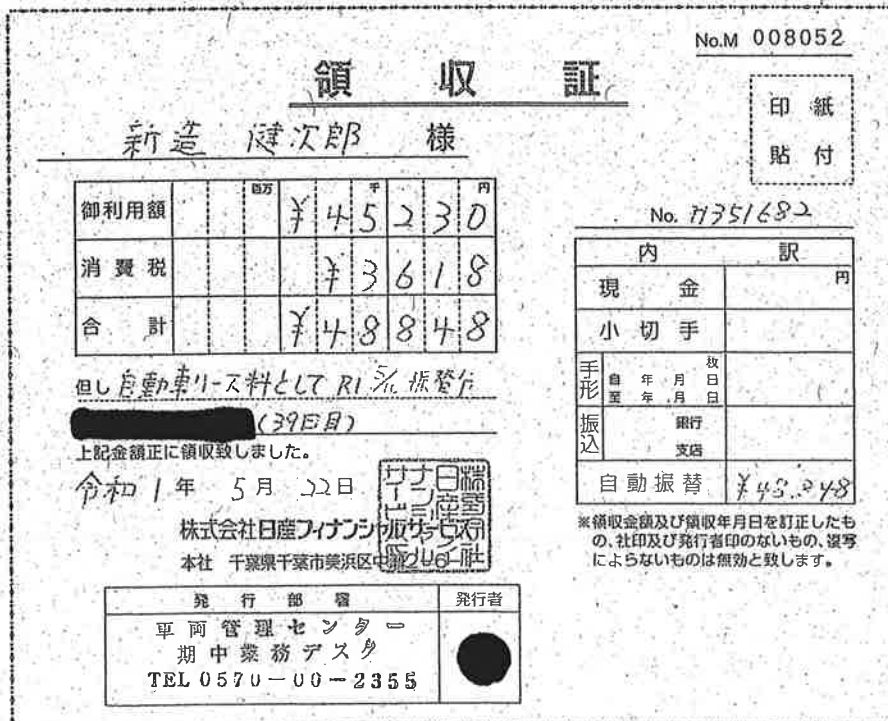 No.M 008052
領収証
印紙
貼付
新造 健次郎 様
百万 千 円
御利用額 ¥45230
消費税 ¥3618
合計 ¥48848
No. 11351682
内訳
現金 円
小切手
手形 枚
自 年 月 日
至 年 月 日
振込 銀行
支店
自動振替 ¥48,848
但し 自動車リース料として R1 振替分
(39回目)
上記金額正に領収致しました。
令和 1年 5月 22日
株式会社日産フィナンシャルサービス
本社 千葉県千葉市美浜区中瀬2-6-1
※領収金額及び領収年月日を訂正したも
の、社印及び発行者印のないもの、複写
によらないものは無効と致します。
発行部署 発行者
車両管理センター
期中業務デスク
TEL 0570-00-2355